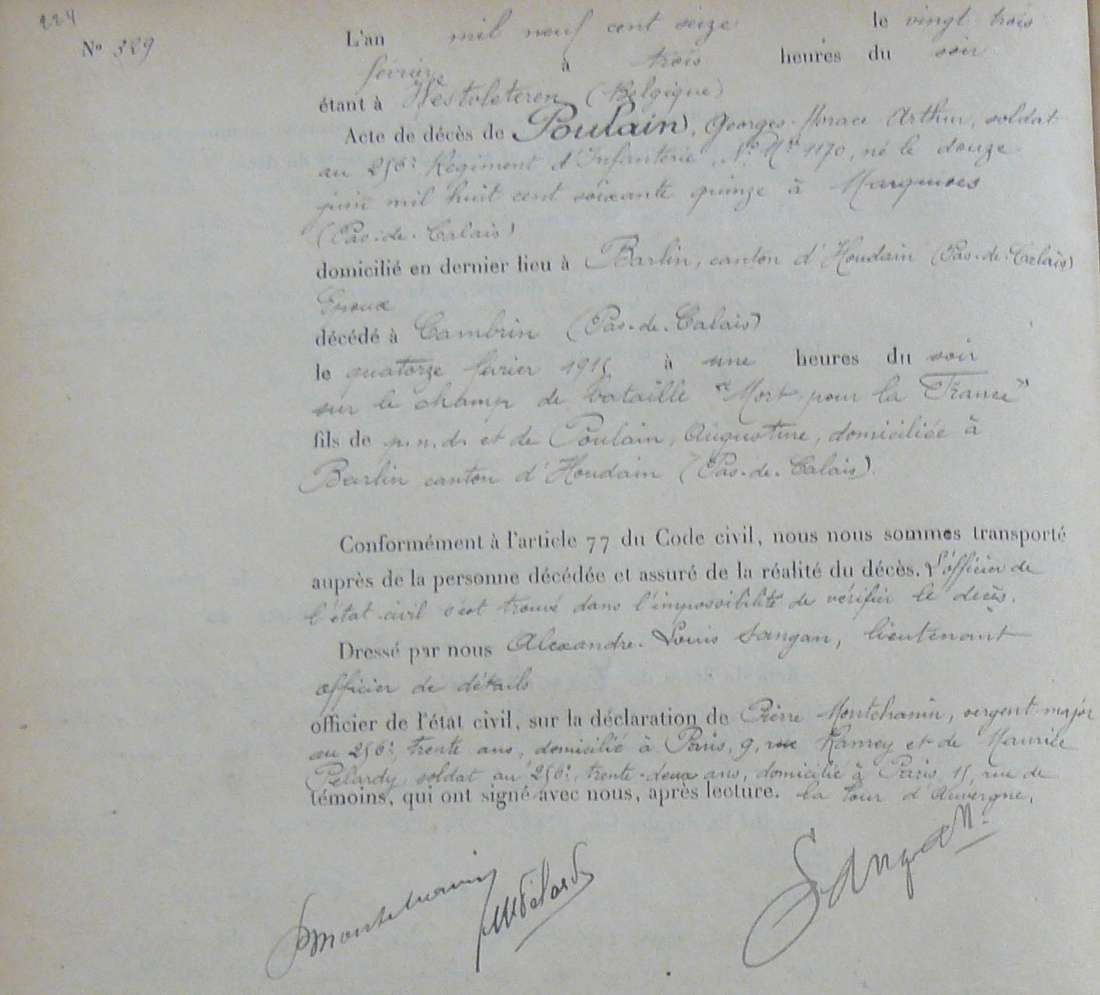 224
L'an mil neuf cent seize le vingt trois
N° 389
février à trois heures du soir
étant à Westvleteren (Belgique)
Acte de décès de Poulain, Georges-Horace Arthur, soldat
au 256e Régiment d'Infanterie, N° Mle 1170, né le douze
juin mil huit cent soixante quinze à Marquises
(Pas-de-Calais)
domicilié en dernier lieu à Barlin, canton d'Houdain (Pas-de-Calais)
décédé à Cambrin (Pas-de-Calais)
le quatorze février 1915 à une heures du soir
sur le champ de bataille "Mort pour la France"
fils de p.n.d. et de Poulain, Augustine, domiciliée à
Barlin canton d'Houdain (Pas-de-Calais).
Conformément à l'article 77 du Code civil, nous nous sommes transporté
auprès de la personne décédée et assuré de la réalité du décès. L'officier de
l'état civil s'est trouvé dans l'impossibilité de vérifier le décès.
Dressé par nous Alexandre-Louis Sangan, lieutenant
officier de détails
officier de l'état civil, sur la déclaration de Pierre Montchanin, sergent-major
au 256e, trente ans, domicilié à Paris, 9, rue Ramey et de Maurice
Pélardy soldat au 256e, trente-deux ans, domicilié à Paris, 15, rue de
témoins, qui ont signé avec nous, après lecture. la tour d'Auvergne.
Montchanin MPélardy Sangan